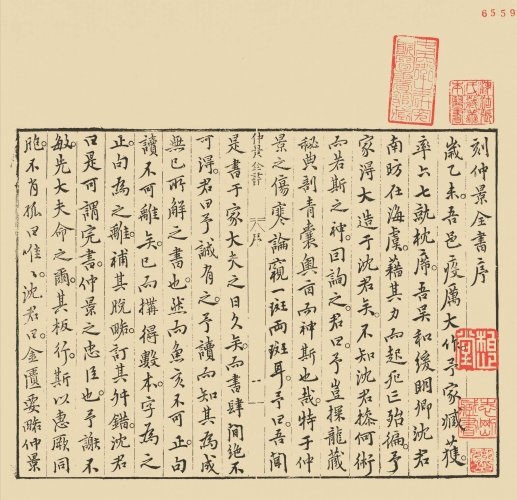 6559
刻仲景全書序
歲乙未吾邑疫厲大作予家臧獲
率六七就枕席吾吳和緩明卿沈君
南昉在海虞藉其力而起死亡殆徧予
家得大造于沈君矣不知沈君操何術
而若斯之神因詢之君曰予豈探龍藏
秘典剖青囊奧旨而神斯也哉特于仲
景之傷寒論窺一斑兩斑耳予曰吾聞
仲景全書 序
是書于家大夫之日久矣而書肆間絕不
可得君曰予誠有之予讀而知其為成
無已所解之書也然而魚亥不可正句
讀不可離矣已而搆得數本字為之
正句為之離補其脫略訂其舛錯沈君
曰是可謂完書仲景之忠臣也予謝不
敏先大夫命之爾其板行斯以惠厥同
胞不肖孤曰唯唯沈君曰金匱要略仲景